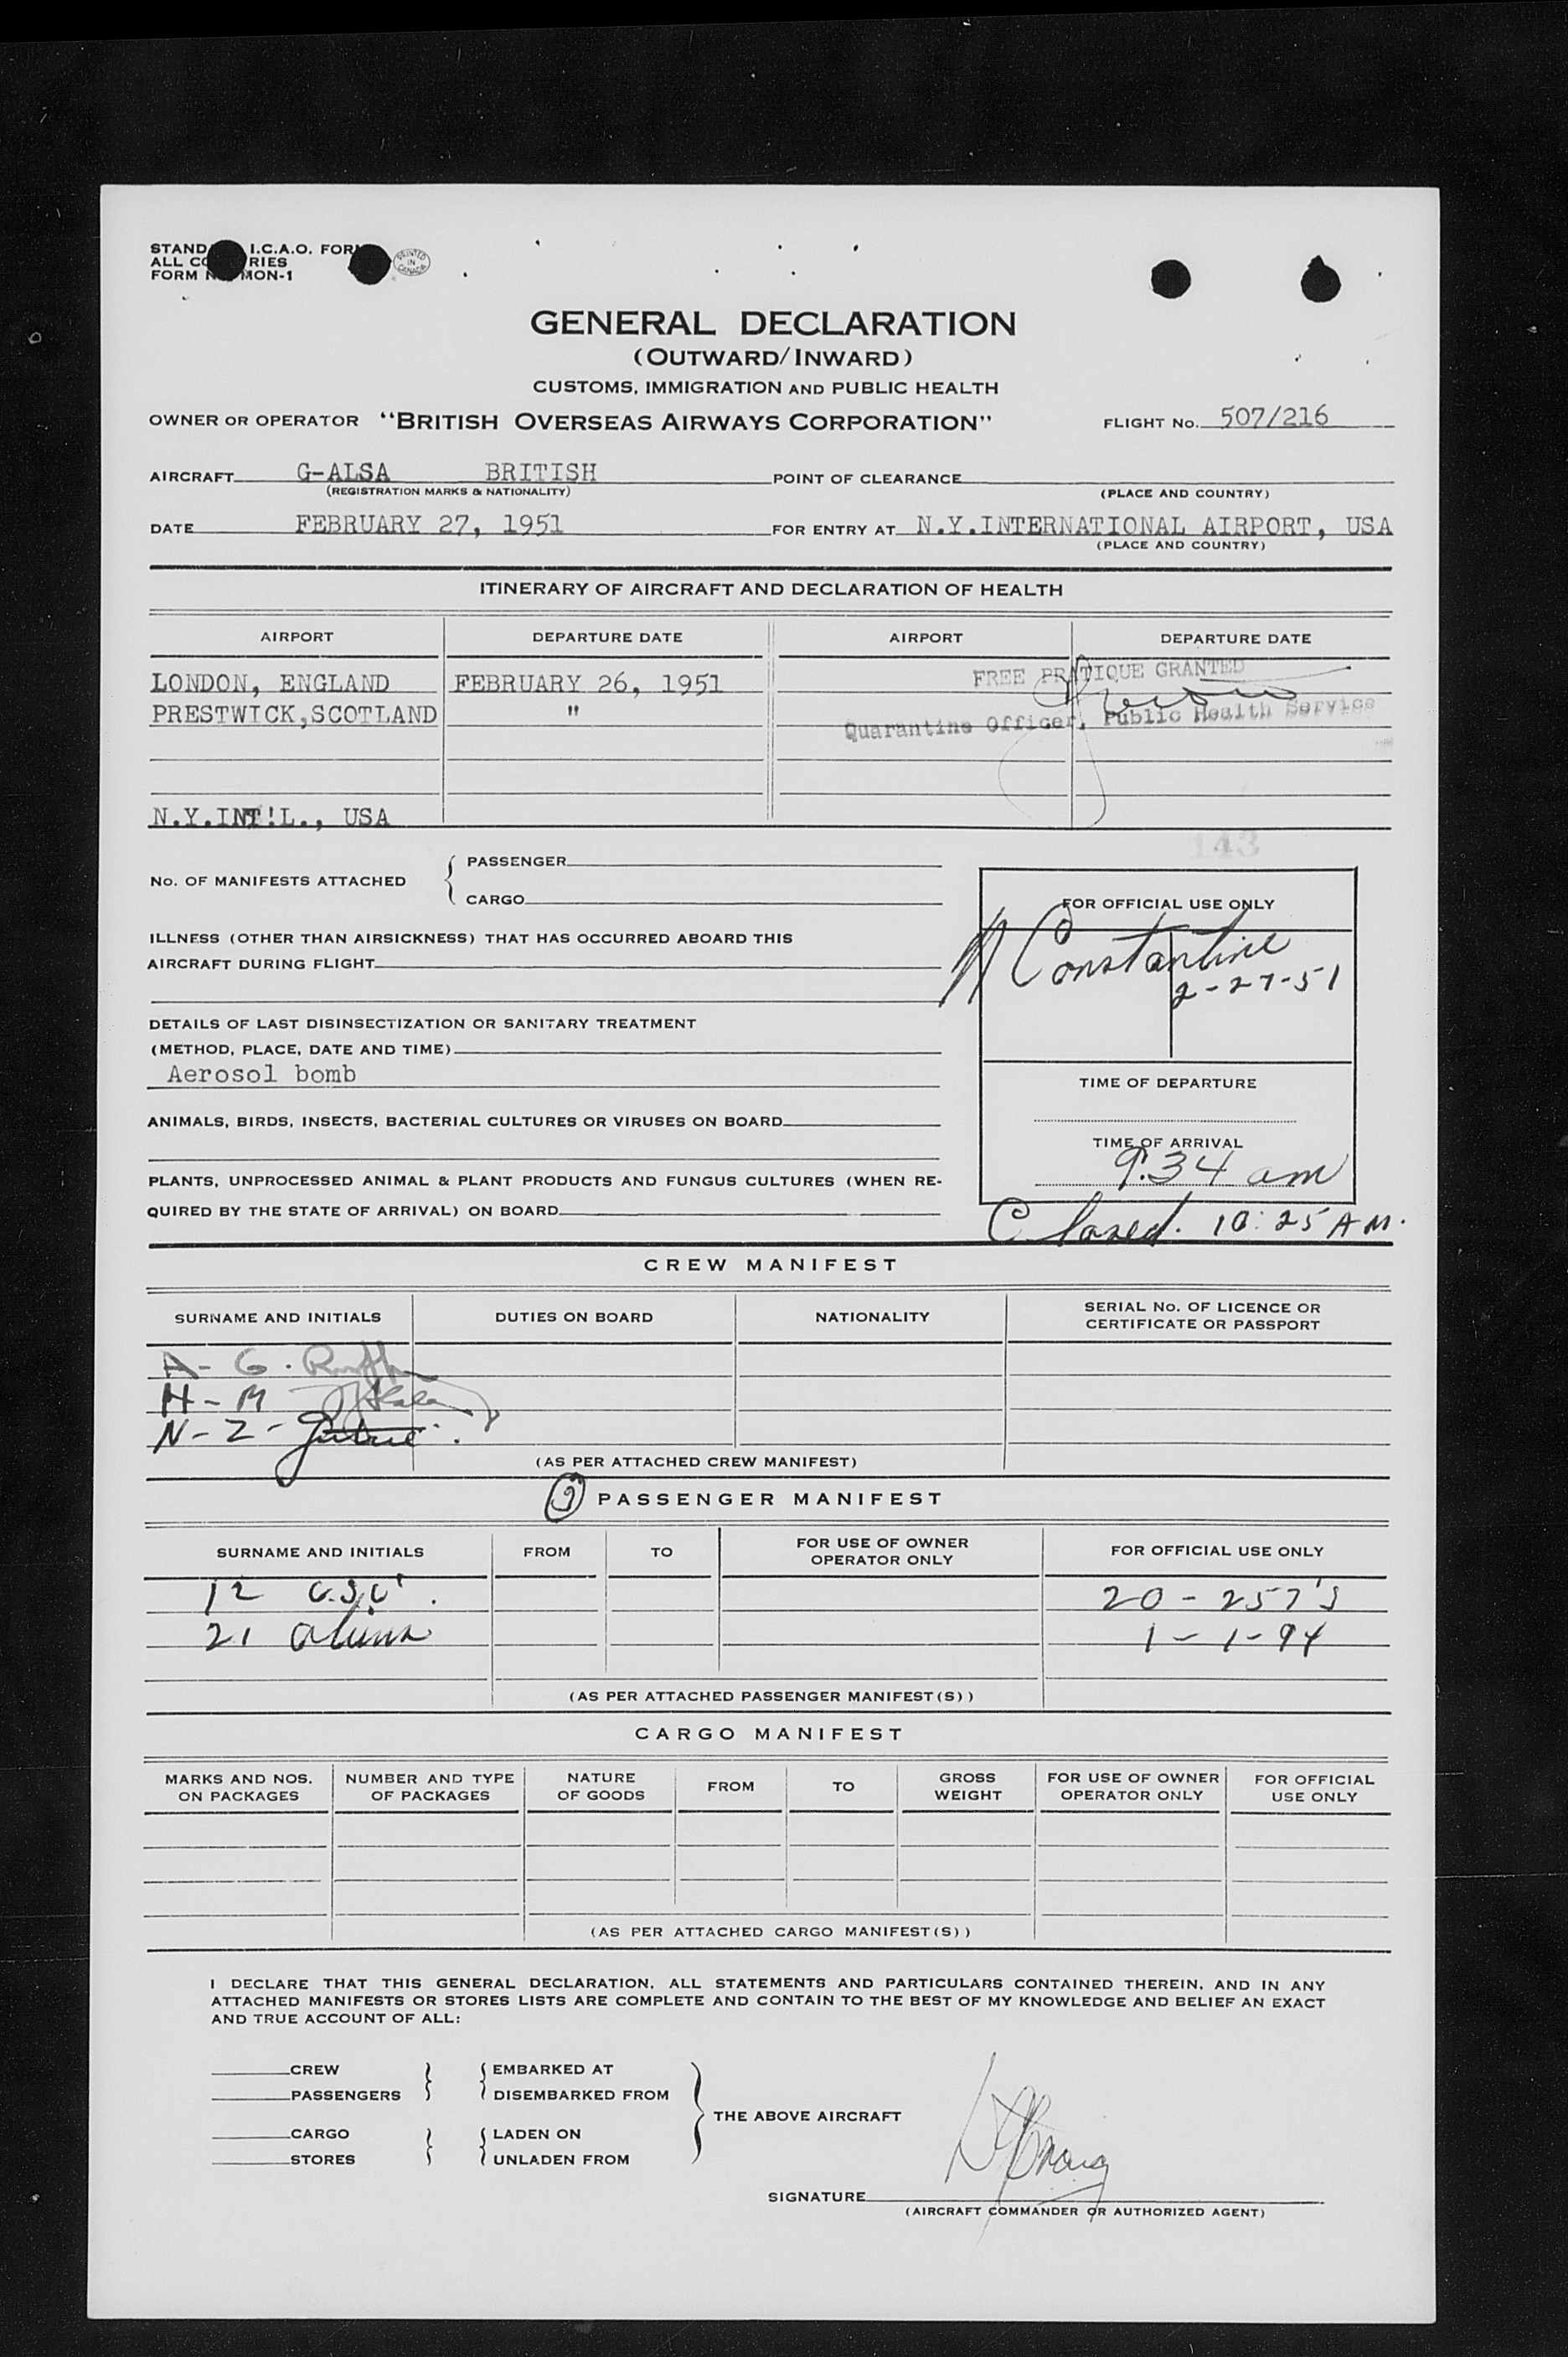 I.C.A.O.
PRINTED IN CANADA
MON-1
GENERAL DECLARATION
(OUTWARD/INWARD)
CUSTOMS, IMMIGRATION AND PUBLIC HEALTH
OWNER OR OPERATOR "BRITISH OVERSEAS AIRWAYS CORPORATION" FLIGHT No. 507/216
AIRCRAFT G-ALSA BRITISH POINT OF CLEARANCE
(REGISTRATION MARKS & NATIONALITY) (PLACE AND COUNTRY)
DATE FEBRUARY 27, 1951 FOR ENTRY AT N.Y.INTERNATIONAL AIRPORT, USA
(PLACE AND COUNTRY)
ITINERARY OF AIRCRAFT AND DECLARATION OF HEALTH
AIRPORT DEPARTURE DATE AIRPORT DEPARTURE DATE
FREE PRATIQUE GRANTED
LONDON, ENGLAND FEBRUARY 26, 1951
PRESTWICK,SCOTLAND "
Quarantine Officer, Public Health Service
N.Y.INT!L., USA
143
PASSENGER
No. OF MANIFESTS ATTACHED
CARGO
FOR OFFICIAL USE ONLY
ILLNESS (OTHER THAN AIRSICKNESS) THAT HAS OCCURRED ABOARD THIS
AIRCRAFT DURING FLIGHT
N Constantine
2-27-51
DETAILS OF LAST DISINSECTIZATION OR SANITARY TREATMENT
(METHOD, PLACE, DATE AND TIME)
Aerosol bomb
TIME OF DEPARTURE
ANIMALS, BIRDS, INSECTS, BACTERIAL CULTURES OR VIRUSES ON BOARD
TIME OF ARRIVAL
9:34 am
PLANTS, UNPROCESSED ANIMAL & PLANT PRODUCTS AND FUNGUS CULTURES (WHEN RE-
QUIRED BY THE STATE OF ARRIVAL) ON BOARD
Closed. 10:25 AM.
CREW MANIFEST
SURNAME AND INITIALS DUTIES ON BOARD NATIONALITY SERIAL No. OF LICENCE OR
CERTIFICATE OR PASSPORT
A - G.
H - M
N - Z -
(AS PER ATTACHED CREW MANIFEST)
PASSENGER MANIFEST
SURNAME AND INITIALS FROM TO FOR USE OF OWNER
OPERATOR ONLY FOR OFFICIAL USE ONLY
12 20 - 257's
21 aliens 1 - 1-94
(AS PER ATTACHED PASSENGER MANIFEST(S))
CARGO MANIFEST
MARKS AND NOS.
ON PACKAGES NUMBER AND TYPE
OF PACKAGES NATURE
OF GOODS FROM TO GROSS
WEIGHT FOR USE OF OWNER
OPERATOR ONLY FOR OFFICIAL
USE ONLY
(AS PER ATTACHED CARGO MANIFEST(S))
I DECLARE THAT THIS GENERAL DECLARATION, ALL STATEMENTS AND PARTICULARS CONTAINED THEREIN, AND IN ANY
ATTACHED MANIFESTS OR STORES LISTS ARE COMPLETE AND CONTAIN TO THE BEST OF MY KNOWLEDGE AND BELIEF AN EXACT
AND TRUE ACCOUNT OF ALL:
CREW EMBARKED AT
PASSENGERS DISEMBARKED FROM
THE ABOVE AIRCRAFT
CARGO LADEN ON
STORES UNLADEN FROM
SIGNATURE
(AIRCRAFT COMMANDER OR AUTHORIZED AGENT)